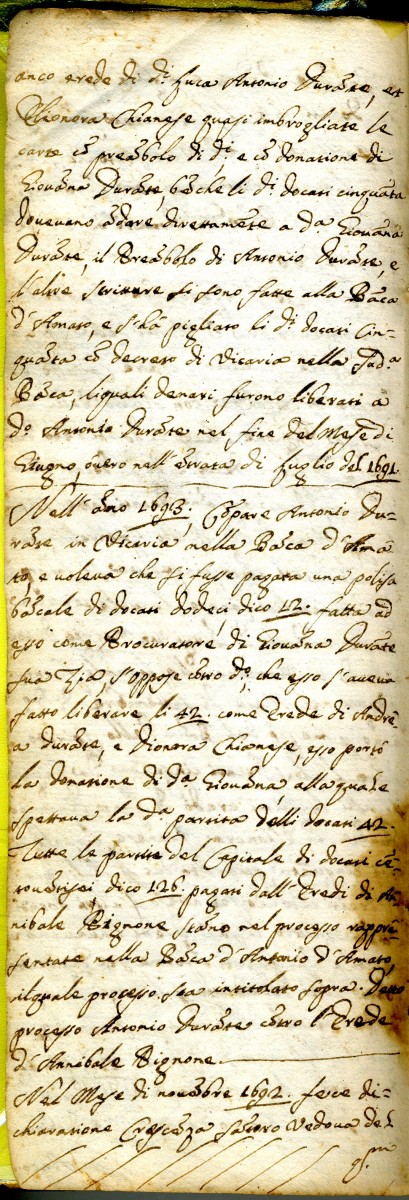 anco erede di d.° Luca Antonio Durãte, et
Eleonora Chianese quasi imbrogliate le
carte cõ preãbolo di d.i e cõ donatione di
Giovãna Durãte, bẽche li d.i docati cinquãta
dovevano ãdare direttamẽte a d.a Giovãna
Durãte, il Preãbolo di Antonio Durãte, e
l'altre scritture si sono fatte alla Bãca
d'Amato, e s'hà pigliato li d.i docati Cin-
quãta cõ decreto di Vicaria nella sud.a
Bãca, liquali denari furono liberati a
d.° Antonio Durãte nel fine del Mese di
Giugno, overo nell'ẽtrata di Luglio del 1691.
Nell'ãno 1693, Cõpare Antonio Du-
rãte in Vicaria nella Bãca d'Amà-
to, e voleva che si fusse pagata una polisa
bãcale di docati dodeci, dico 12. fatta ad
esso come Procuratore di Giovãna Durãte
sua Zia, s'oppose cõtro d.° che esso s'aveva
fatto liberare li 42. come Erede di Andre-
a Durãte, e Dionora Chianese, esso portò
la donatione di d.a Giovãna, alla quale
spettava la d.a partita delli docati 42.
Tutte le partite del Capitale di docati cẽ-
tovẽtisei dico 126. pagati dall'Eredi di An-
nibale Pignone stãno nel processo rapprẽ-
sentate nella Bãca d'Antonio d'Amato,
ilquale processo sta intitolato sopra. Detto
processo Antonio Durãte cõtro l'Erede
d'Annibale Pignone.
Nel Mese di novẽbre 1692. fece di-
chiaratione Crescẽza Santoro Vedova del
q.m